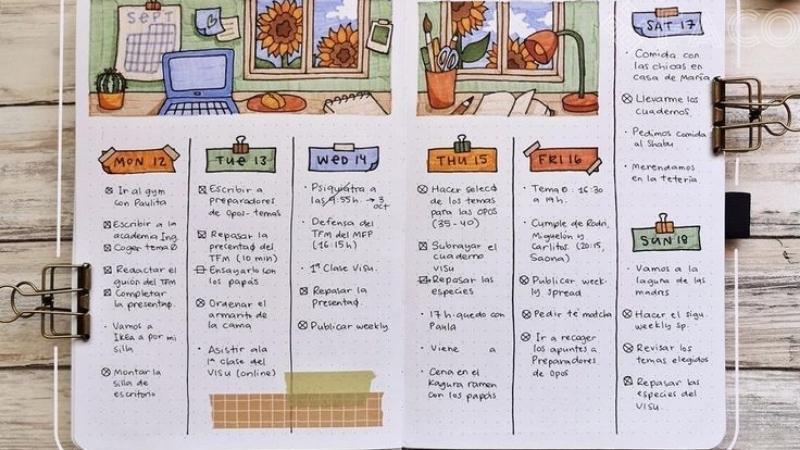 SEPT
MON 12
Ir al gym
con Paulita
Escribir a la
academia Ing.
Coger tema 0
Redactar el
guión del TFM
Completar
la presentac.
Vamos a
IKEA a por mi
silla
Montar la
silla de
escritorio
TUE 13
Escribir a
preparadores
de opos-temas
Repasar la
presentac del
TFM (10 min)
Ensayarlo con
los papás
Ordenar el
armarito de
la cama
Asistir a la
1ª clase del
VISU (online)
WED 14
Psiquiatra a
las 9:55h. → 3
oct
Defensa del
TFM del MFP
(16:15h)
1ª Clase Visu.
Repasar la
presentac.
Publicar weekly
THU 15
Hacer selecc
de los temas
para las OPOS
(35-40)
Subrayar el
cuaderno
VISU
Repasar las
especies
17h quedo con
Paula
Viene a
Cena en el
Kagura ramen
con los papás
FRI 16
Tema 0: 16:30
a 19h.
Cumple de Rodri,
Miguelón y
Carlitos (20:15,
Saona)
Publicar week-
ly spread
Pedir té matcha
Ir a recoger
los apuntes a
Preparadores
de Opos
SAT 17
Comida con
las chicas en
casa de María
Llevarme los
cuadernos.
Pedimos comida
al Shabu
Merendamos
en la tetería
SUN 18
Vamos a la
laguna de las
madres
Hacer el sigu.
weekly sp.
Revisar los
temas elegidos
Repasar las
especies del
VISU.